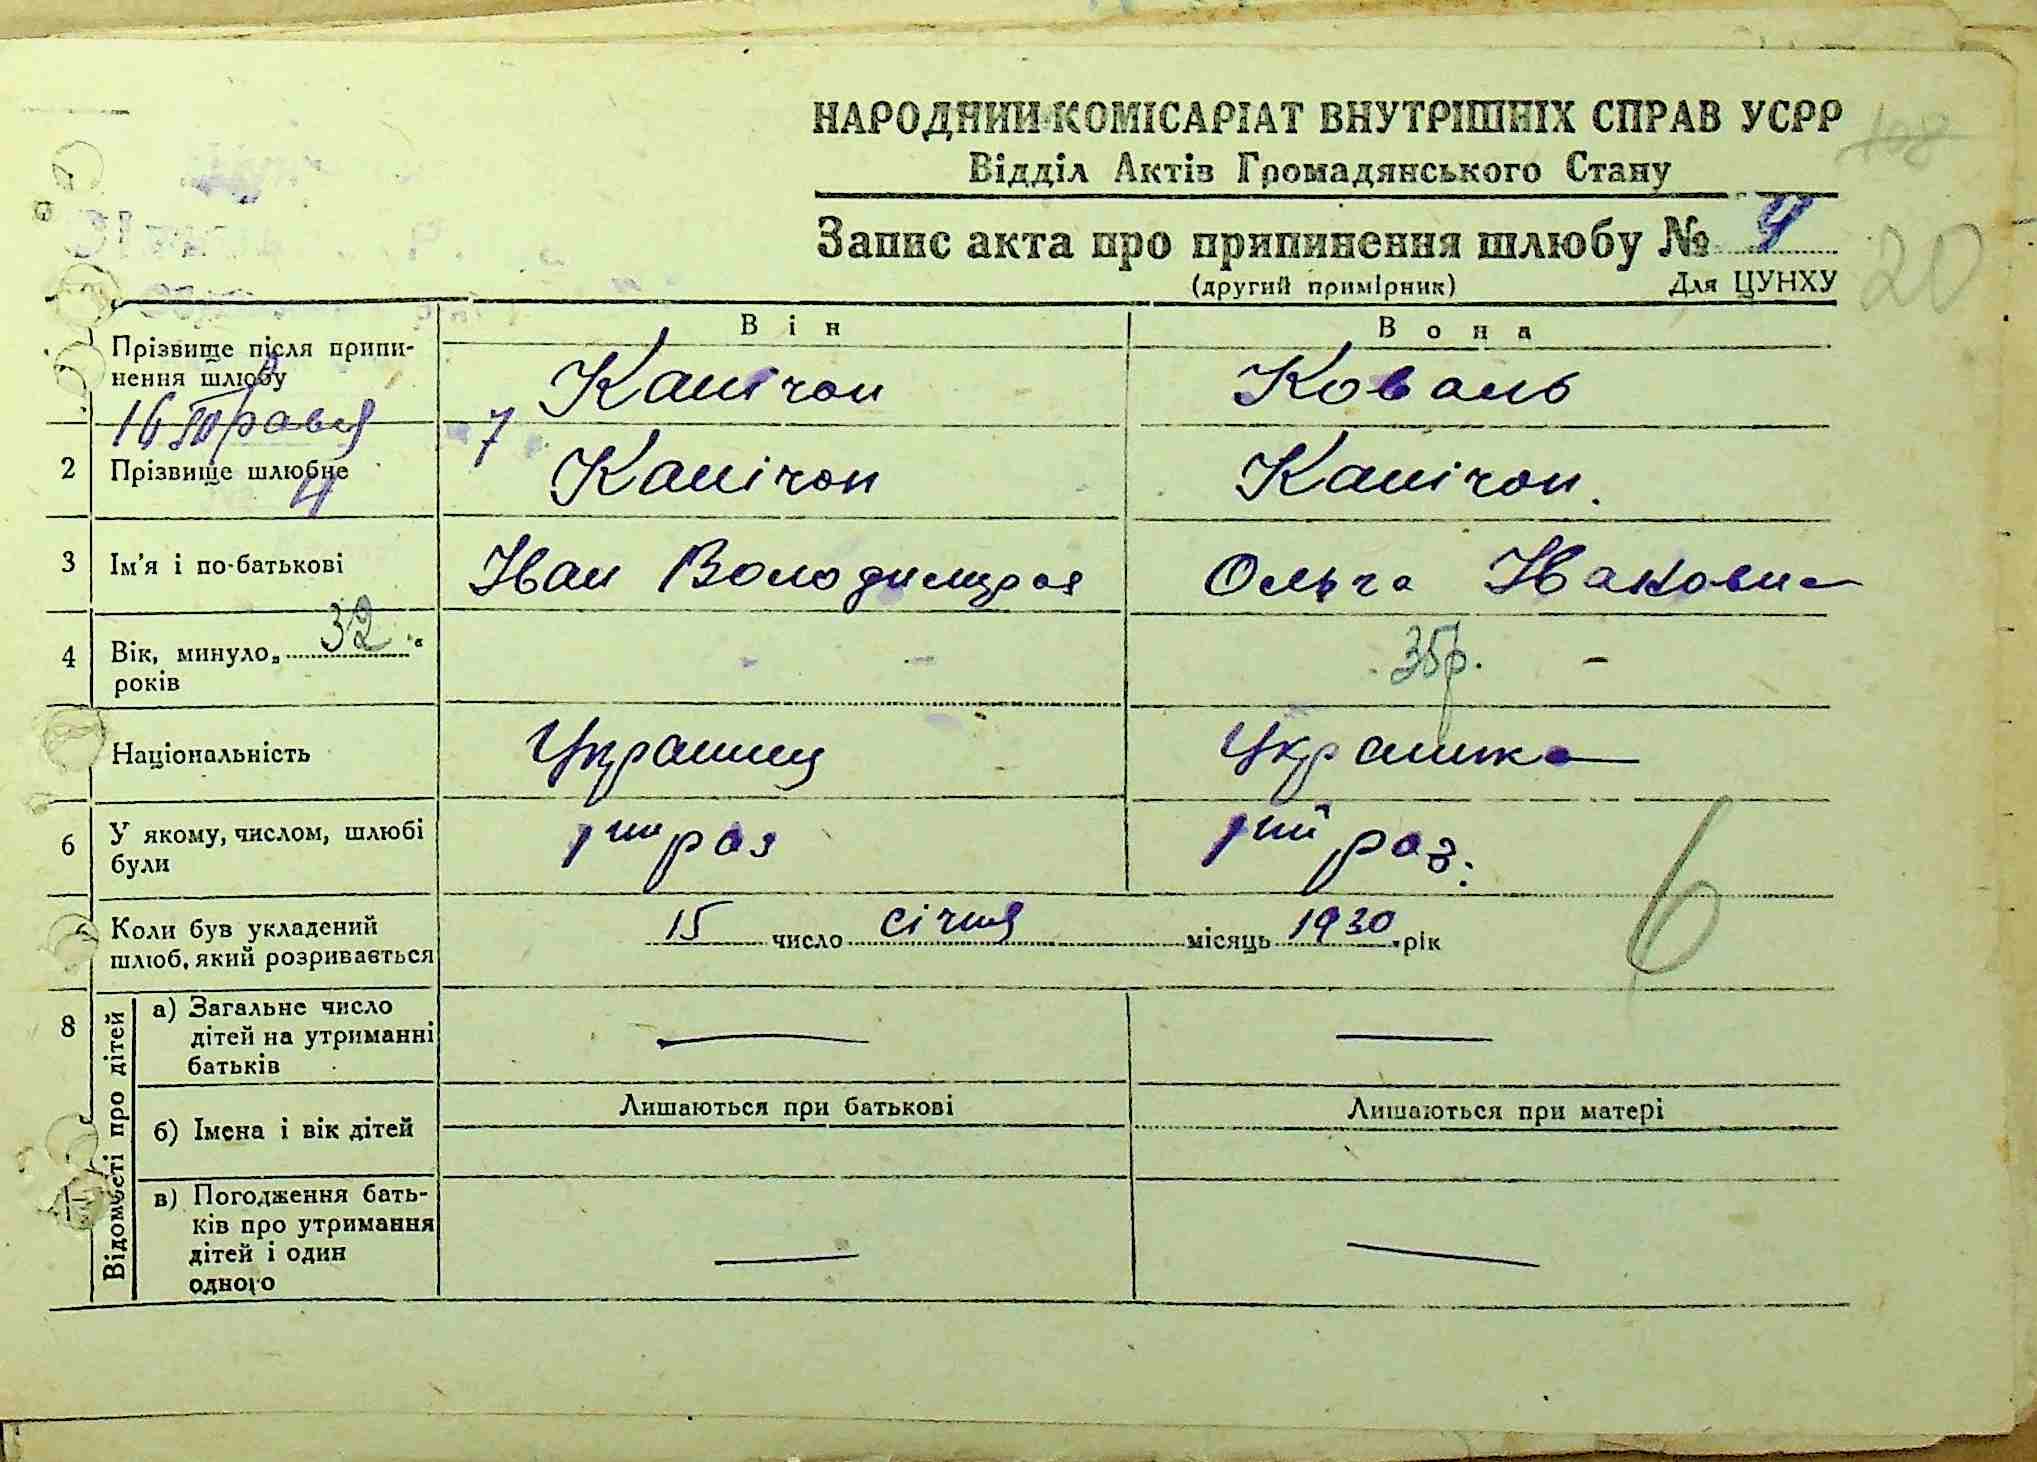 108
НАРОДНИЙ КОМІСАРІАТ ВНУТРІШНІХ СПРАВ УСРР
Відділ Актів Громадянського Стану
Запис акта про припинення шлюбу № 9
20
(другий примірник) Для ЦУНХУ
Він Вона
Прізвище після припи-
нення шлюбу
Капічон Коваль
16 травня
7
2 Прізвище шлюбне Капічон Капічон.
3 Ім'я і по-батькові Іван Володимиров Ольга Іваковна
4 Вік, минуло „ 32 “ 35р. -
років
Національність Українец Українка
6 У якому, числом, шлюбі
були
1ший раз 1ший раз.
6
Коли був укладений
шлюб, який розривається
15 число січня місяць 1930 рік
8 Відомості про дітей
а) Загальне число
дітей на утриманні
батьків
б) Імена і вік дітей
Лишаються при батькові Лишаються при матері
в) Погодження бать-
ків про утримання
дітей і один
одного